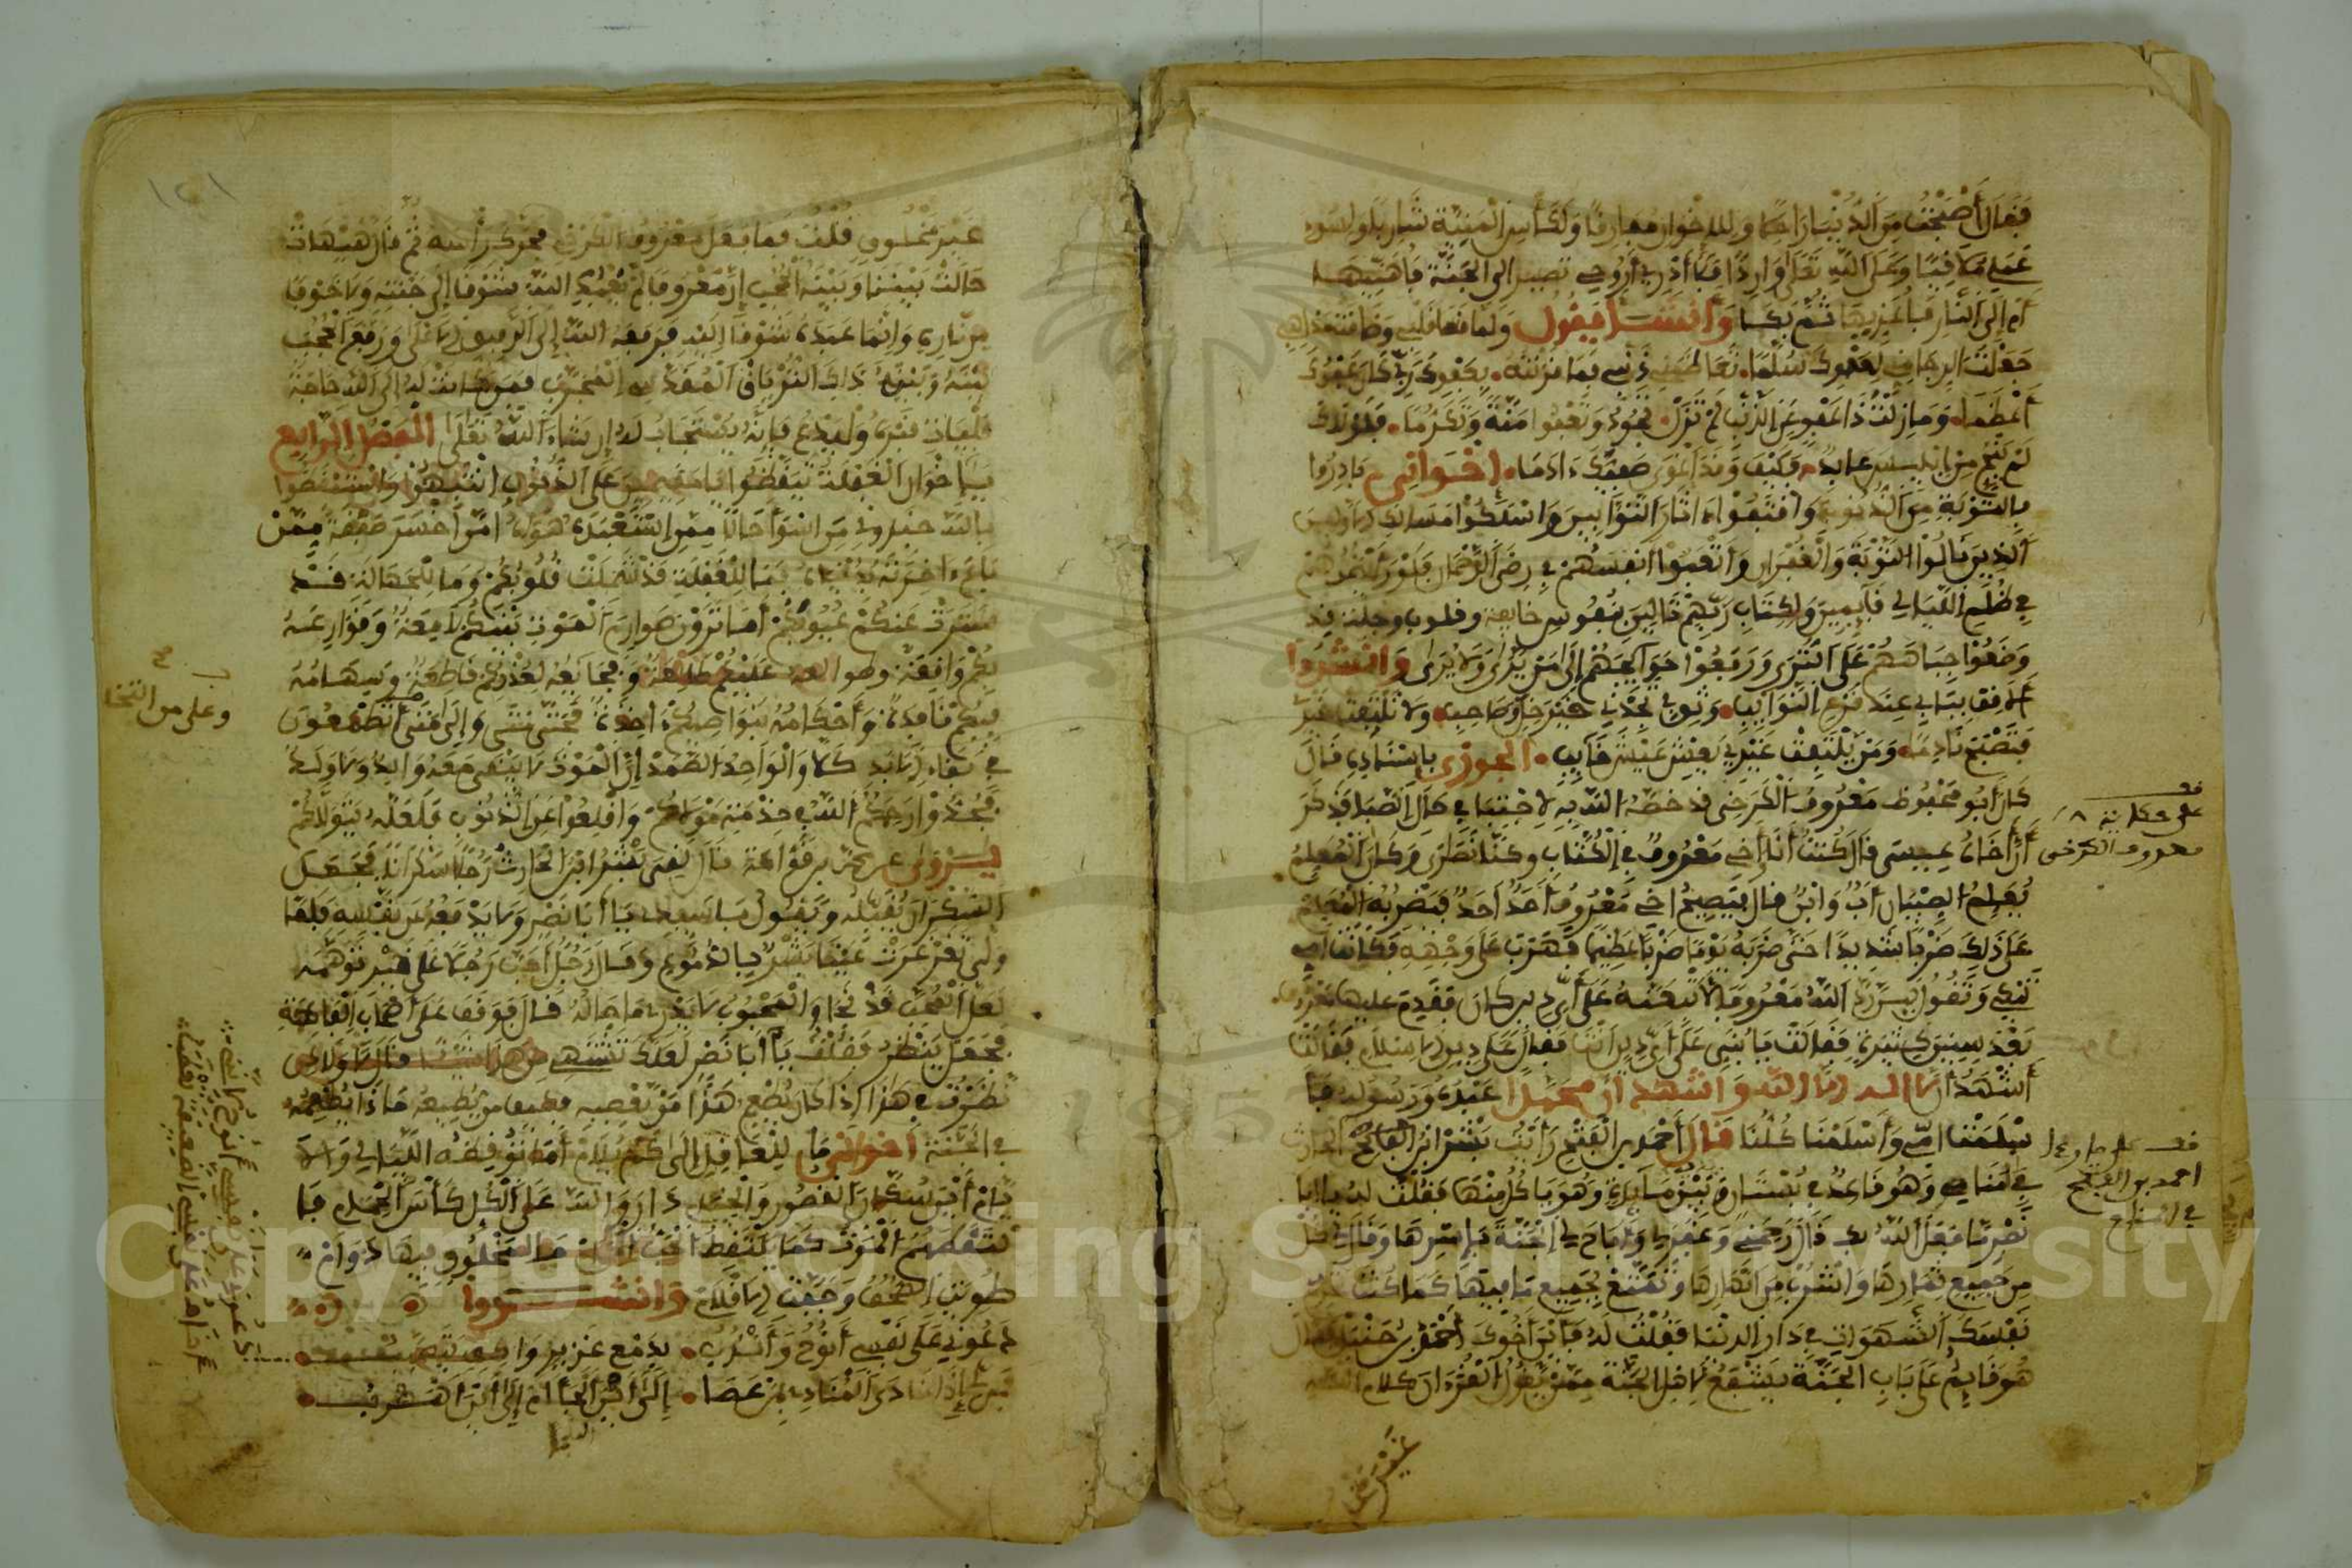 فَقَالَ أَصْبَحْتُ مِنَ الدُّنْيَا رَاحِلًا وَلِلْإِخْوَانِ مُفَارِقًا وَلِكَأْسِ الْمَنِيَّةِ شَارِبًا وَلِسُوءِ
عَمَلِي مُلَاقِيًا وَعَلَى اللَّهِ تَعَلَى وَارِدًا فَلَا أَدْرِي أَرُوحِي تَصِيرُ إِلَى الْجَنَّةِ فَأُهَنِّيهَا
أَمْ إِلَى النَّارِ فَأُعَزِّيهَا ثُمَّ بَكَا وَأَنْشَأَ يَقُولُ وَلَمَّا قَسَا قَلْبِي وَضَاقَتْ مَذَاهِبِي
جَعَلْتُ الرَّجَا مِنِّي لِعَفْوِكَ سُلَّمًا تَعَاظَمَنِي ذَنْبِي فَلَمَّا قَرَنْتُهُ بِعَفْوِكَ رَبِّي كَانَ عَفْوُكَ
أَعْظَمَا وَمَا زِلْتَ ذَا عَفْوٍ عَنِ الذَّنْبِ لَمْ تَزَلْ تَجُودُ وَتَعْفُوا مِنَّةً وَتَكَرُّمَا فَلَوْلَاكَ
لَمْ يَنْجُ مِنْ إِبْلِيسَ عَابِدٌ فَكَيْفَ وَقَدْ أَغْوَى صَفِيَّكَ ءَادَمَا إخْوَانِي بَادِرُوا
بِالتَّوْبَةِ مِنَ الذُّنُوبِ وَاقْتَفُوا ءَاثَارَ التَّوَّابِينَ وَاسْلُكُوا مَسَالِكَ الْأَوَّابِينَ
الَّذِينَ نَالُوا التَّوْبَةَ وَالْغُفْرَانَ وَأَتْعَبُوا أَنْفُسَهُمْ فِي رِضَى الرَّحْمَانِ فَلَوْ رَأَيْتَهُمْ
فِي ظُلَمِ اللَّيَالِي قَائِمِينَ وَلِكِتَابِ رَبِّهِمْ تَالِينَ بِنُفُوسٍ خَائِفَةٍ وَقُلُوبٍ وَجِلَةٍ قَدْ
وَضَعُوا جِبَاهَهُمْ عَلَى الثَّرَى وَرَفَعُوا حَوَائِجَهُمْ إِلَى مَنْ يَرَى وَلَا يُرَى وَأَنْشَدُوا
أَلَا قِفْ بِبَابِي عِنْدَ قَرْعِ النَّوَائِبِ وَثِقْ بِي تَجِدْنِي خَيْرَ خِلٍّ وَصَاحِبِ وَلَا تَلْتَفِتْ غَيْرِي
فَتُصْبِحَ نَادِمًا وَمَنْ يَلْتَفِتْ غَيْرِي يَعِيشُ عَيْشَ خَائِبِ الجوزي بِإِسْنَادِهِ قَالَ
كَانَ أَبُو مَحْفُوظٍ مَعْرُوفٌ الْكَرْخِي قَدْ خَصَّهُ اللَّهُ بِالِاجْتِبَا فِي حَالِ الصِّبَا فَذُكِرَ
أَنَّ أَخَاهُ عِيسَى قَالَ كُنْتُ أَنَا وَأَخِي مَعْرُوفٌ فِي الْكُتَّابِ وَكُنَّا نَصَارَى وَكَانَ الْمُعَلِّمُ
يُعَلِّمُ الصِّبْيَانَ أَبٌ وَابْنٌ قَالَ فَيَصِيحُ أَخِي مَعْرُوفٌ أَحَدٌ أَحَدٌ فَيَضْرِبُهُ الْمُعَلِّمُ
عَلَى ذَلِكَ ضَرْبًا شَدِيدًا حَتَّى ضَرَبَهُ يَوْمًا ضَرْبًا عَظِيمًا فَهَرَبَ عَلَى وَجْهِهِ فَكَانَتْ أُمِّي
تَبْكِي وَتَقُولُ لَئِنْ رَدَّ اللَّهُ مَعْرُوفًا لَأَتَّبِعَنَّهُ عَلَى أَيِّ دِينٍ كَانَ فَقَدِمَ عَلَيْهَا مَعْرُوفٌ
بَعْدَ سِنِينَ كَثِيرَةٍ فَقَالَتْ يَا بُنَيَّ عَلَى أَيِّ دِينٍ أَنْتَ فَقَالَ عَلَى دِينِ الْإِسْلَامِ فَقَالَتْ
أَشْهَدُ أَنْ لَا إِلَهَ إِلَّا اللَّهُ وَأَشْهَدُ أَنَّ مُحَمَّدًا عَبْدُهُ وَرَسُولُهُ
فَأَسْلَمَتْ أُمِّي وَأَسْلَمْنَا كُلُّنَا قَالَ أَحْمَدُ بْنُ الْفَتْحِ رَأَيْتُ بِشْرًا بْنَ الْحَارِثِ
فِي مَنَامِي وَهُوَ قَاعِدٌ فِي بُسْتَانٍ وَبَيْنَ يَدَيْهِ مَائِدَةٌ وَهُوَ يَأْكُلُ مِنْهَا فَقُلْتُ لَهُ يَا أَبَا
نَصْرٍ مَا فَعَلَ اللَّهُ بِكَ قَالَ رَحِمَنِي وَغَفَرَ لِي وَأَبَاحَ لِي الْجَنَّةَ بِأَسْرِهَا وَقَالَ لِي كُلْ
مِنْ جَمِيعِ ثِمَارِهَا وَاشْرَبْ مِنْ أَنْهَارِهَا وَتَمَتَّعْ بِجَمِيعِ مَا فِيهَا كَمَا كُنْتَ تَحْرِمُ
نَفْسَكَ الشَّهَوَاتِ فِي دَارِ الدُّنْيَا فَقُلْتُ لَهُ فَأَيْنَ أَخُوكَ أَحْمَدُ بْنُ حَنْبَلٍ قَالَ
هُوَ قَائِمٌ عَلَى بَابِ الْجَنَّةِ يَشْفَعُ لِأَهْلِ السُّنَّةِ مِمَّنْ يَقُولُ الْقُرْءَانُ كَلَامُ اللَّهِ
غَيْرُ مَخْلُوقٍ
قف على حكاية معروف الكرخي
قف على ما رءا احمد بن الفتح في المنام
غَيْرُ مَخْلُوقٍ فَقُلْتُ فَمَا فَعَلَ مَعْرُوفٌ الْكَرْخِي فَحَرَّكَ رَأْسَهُ ثُمَّ قَالَ هَيْهَاتَ
حَالَتْ بَيْنَنَا وَبَيْنَهُ الْحُجُبُ إِنَّ مَعْرُوفًا لَمْ يَعْبُدِ اللَّهَ شَوْقًا إِلَى جَنَّتِهِ وَلَا خَوْفًا
مِنْ نَارِهِ وَإِنَّمَا عَبَدَهُ شَوْقًا إِلَيْهِ فَرَفَعَهُ اللَّهُ إِلَى الرَّفِيقِ الْأَعْلَى وَرَفَعَ الْحُجُبَ
بَيْنَهُ وَبَيْنَهُ ذَاكَ التِّرْيَاقُ الْمُقَدَّسُ الْمُجَرَّبُ فَمَنْ كَانَتْ لَهُ إِلَى اللَّهِ حَاجَةٌ
فَلْيَأْتِ قَبْرَهُ وَلْيَدْعُ فَإِنَّهُ يُسْتَجَابُ لَهُ إِنْ شَاءَ اللَّهُ تَعَلَى الفصل الرابع
يَا إِخْوَانَ الْغَفْلَةِ تَيَقَّظُوا يَا مُقِيمِينَ عَلَى الذُّنُوبِ انْتَبِهُوا وَاتَّعِظُوا
بِاللَّهِ خَبِّرُونِي مَنْ أَسْوَأُ حَالًا مِمَّنِ اسْتَعْبَدَهُ هَوَاهُ أَمْ مَنْ أَخْسَرُ صَفْقَةً مِمَّنْ
بَاعَ ءَاخِرَتَهُ بِدُنْيَاهُ فَمَا لِلْغَفْلَةِ قَدْ شَمِلَتْ قُلُوبَكُمْ وَمَا لِلْجَهَالَةِ قَدْ
سَتَرَتْ عَنْكُمْ عُيُوبَكُمْ أَمَا تَرَوْنَ صَوَارِمَ الْمَوْتِ بَيْنَكُمْ لَامِعَةً وَقَوَارِعَهُ
بِكُمْ وَاقِعَةً وَطَوَالِعَهُ عَلَيْكُمْ طَالِعَةً وَفَجَائِعَهُ لِعُذْرِكُمْ قَاطِعَةً وَسِهَامَهُ
فِيكُمْ نَافِذَةً وَأَحْكَامَهُ بِنَوَاصِيكُمْ ءَاخِذَةً فَحَتَّى مَتَى وَإِلَى مَتَى أَتَطْمَعُونَ
فِي بَقَاءِ الْأَبَدِ كَلَّا وَالْوَاحِدِ الصَّمَدِ إِنَّ الْمَوْتَ لَا يَبْقَى مَعَهُ وَالِدٌ وَلَا وَلَدٌ
فَجِدُّوا رَحِمَكُمُ اللَّهُ فِي خِدْمَةِ مَوْلَاكُمْ وَاقْلِعُوا عَنِ الذُّنُوبِ فَلَعَلَّهُ يَتَوَلَّاكُمْ
يُرْوَى عن قَالَ لَقِيَ بِشْرُ ابْنُ الْحَارِثِ رَجُلًا سَكْرَانًا فَجَعَلَ
السَّكْرَانُ يُقَبِّلُهُ وَيَقُولُ يَا سَيِّدِي يَا أَبَا نَصْرٍ وَلَا يَدْفَعُهُ عَنْ نَفْسِهِ فَلَمَّا
وَلَّى تَغَرْغَرَتْ عَيْنَا بِشْرٍ بِالدُّمُوعِ وَقَالَ رَجُلٌ أَحَبَّ رَجُلًا عَلَى خَيْرٍ تَوَهَّمَهُ
لَعَلَّ الْمُحِبَّ قَدْ نَجَا وَالْمَحْبُوبُ لَا يَدْرِي مَا حَالُهُ قَالَ فَوَقَفَ عَلَى أَصْحَابِ الْفَاكِهَةِ
فَجَعَلَ يَنْظُرُ فَقُلْتُ يَا أَبَا نَصْرٍ لَعَلَّكَ تَشْتَهِي مِنْ هَذَا شَيْئًا قَالَ لَا وَلَاكِنْ
نَظَرْتُ فِي هَذَا إِذَا كَانَ يُطْعِمُ هَذَا مَنْ يَعْصِيهِ فَكَيْفَ مَنْ يُطِيعُهُ مَاذَا يُطْعِمُهُ
فِي الْجَنَّةِ إخواني مَا لِلْغَافِلِ إِلَى كَمْ يَنَامُ أَمَا تُوقِظُهُ اللَّيَالِي وَالْأَ
يَّامُ أَيْنَ سُكَّانُ الْقُصُورِ وَالْخِيَامِ دَارَ وَاللَّهِ عَلَى الْكُلِّ كَأْسُ الْحِمَامِ فَا
لْتَقَطَهُمُ الْمَوْتُ كَمَا يَلْتَقِطُ الْحَبَّ الْحَمَامُ مَا لِمَخْلُوقٍ فِيهَا دَوَامٌ
طُوِيَتِ الصُّحُفُ وَجَفَّتِ الْأَقْلَامُ وَأَنْشَدُوا
دَعُونِي عَلَى نَفْسِي أَنُوحُ وَأَنْدُبُ بِدَمْعٍ غَزِيرٍ وَاكِفٍ
فَمَنْ لِي إِذَا نَادَى الْمُنَادِي بِمَنْ عَصَا إِلَى أَيْنَ إِلْجَائِي إِلَى أَيْنَ أَهْرُبُ